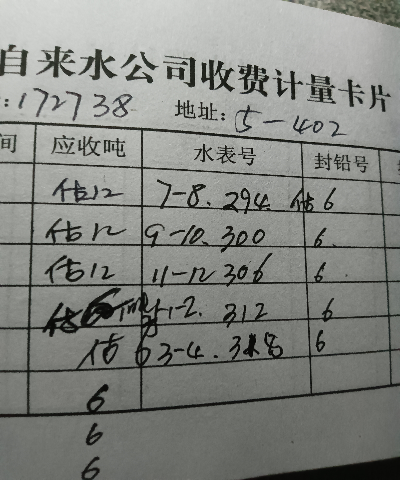 自来水公司收费计量卡片
:172738 地址:5-402
间 应收吨 水表号 封铅号
估12 7-8. 294 估6
估12 9-10. 300 6.
估12 11-12 306 6
估6 1-2. 312 6
估6 3-4. 318 6
6
6
6